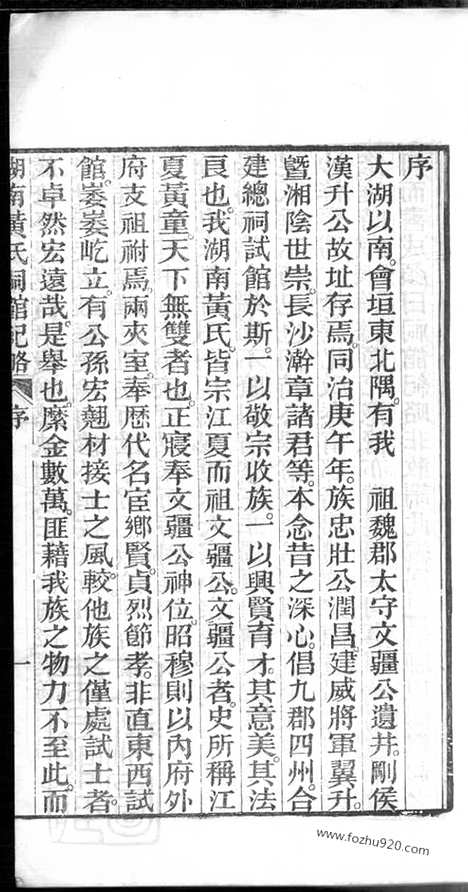 序
大湖以南。會垣東北隅。有我 祖魏郡太守文疆公遺井。剛侯
漢升公故址存焉。同治庚午年。族忠壯公潤昌。建威將軍翼升。
暨湘陰世崇。長沙瀚章諸君等。本念昔之深心。倡九郡四州。合
建總祠試館於斯。一以敬宗收族。一以興賢育才。其意美。其法
良也。我湖南黃氏。皆宗江夏而祖文疆公。文疆公者。史所稱江
夏黃童。天下無雙者也。正寢奉文疆公神位。昭穆則以內府外
府支祖祔焉。兩夾室。奉歷代名宦鄉賢。貞烈節孝。非直東西試
館。峩峩屹立。有公孫宏翹材接士之風。較他族之僅處試士者。
不卓然宏遠哉。是舉也。縻金數萬。匪藉我族之物力不至此。而
湖南黃氏祠館紀略 序 一
http://www.fozhu920.com/